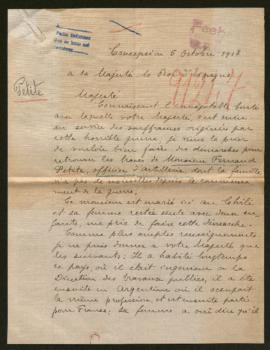 Concepción 5 Octobre 1918
a sa Majesté le Roi d'Espagne
Petite
Majesté
Connaissant l'inépuisable bonté
avec laquelle votre Majesté s'est mise
au service des souffrances originées par
cette horrible guerre, je me
de vouloir bien faire des démarches pour
retrouver les traces de Monsieur Fernand
Petite, officier d'artillerie dont la famille
n'a pas de nouvelles depuis le commence
ment de la guerre.
Ce monsieur est marié ici au Chili
et sa femme restée seule avec deux en
fants, m'a prié de faire cette démarche.
Comme plus amples renseignements
je ne puis donner a votre Majesté que
les suivants: Il a habité longtemps
ce pays, où il était ingénieur a la
Direction des travaux publics, il a été
ensuite en Argentine où il occupait
la même profession, et est ensuite parti
pour France. Sa femme a ouï dire qu'il